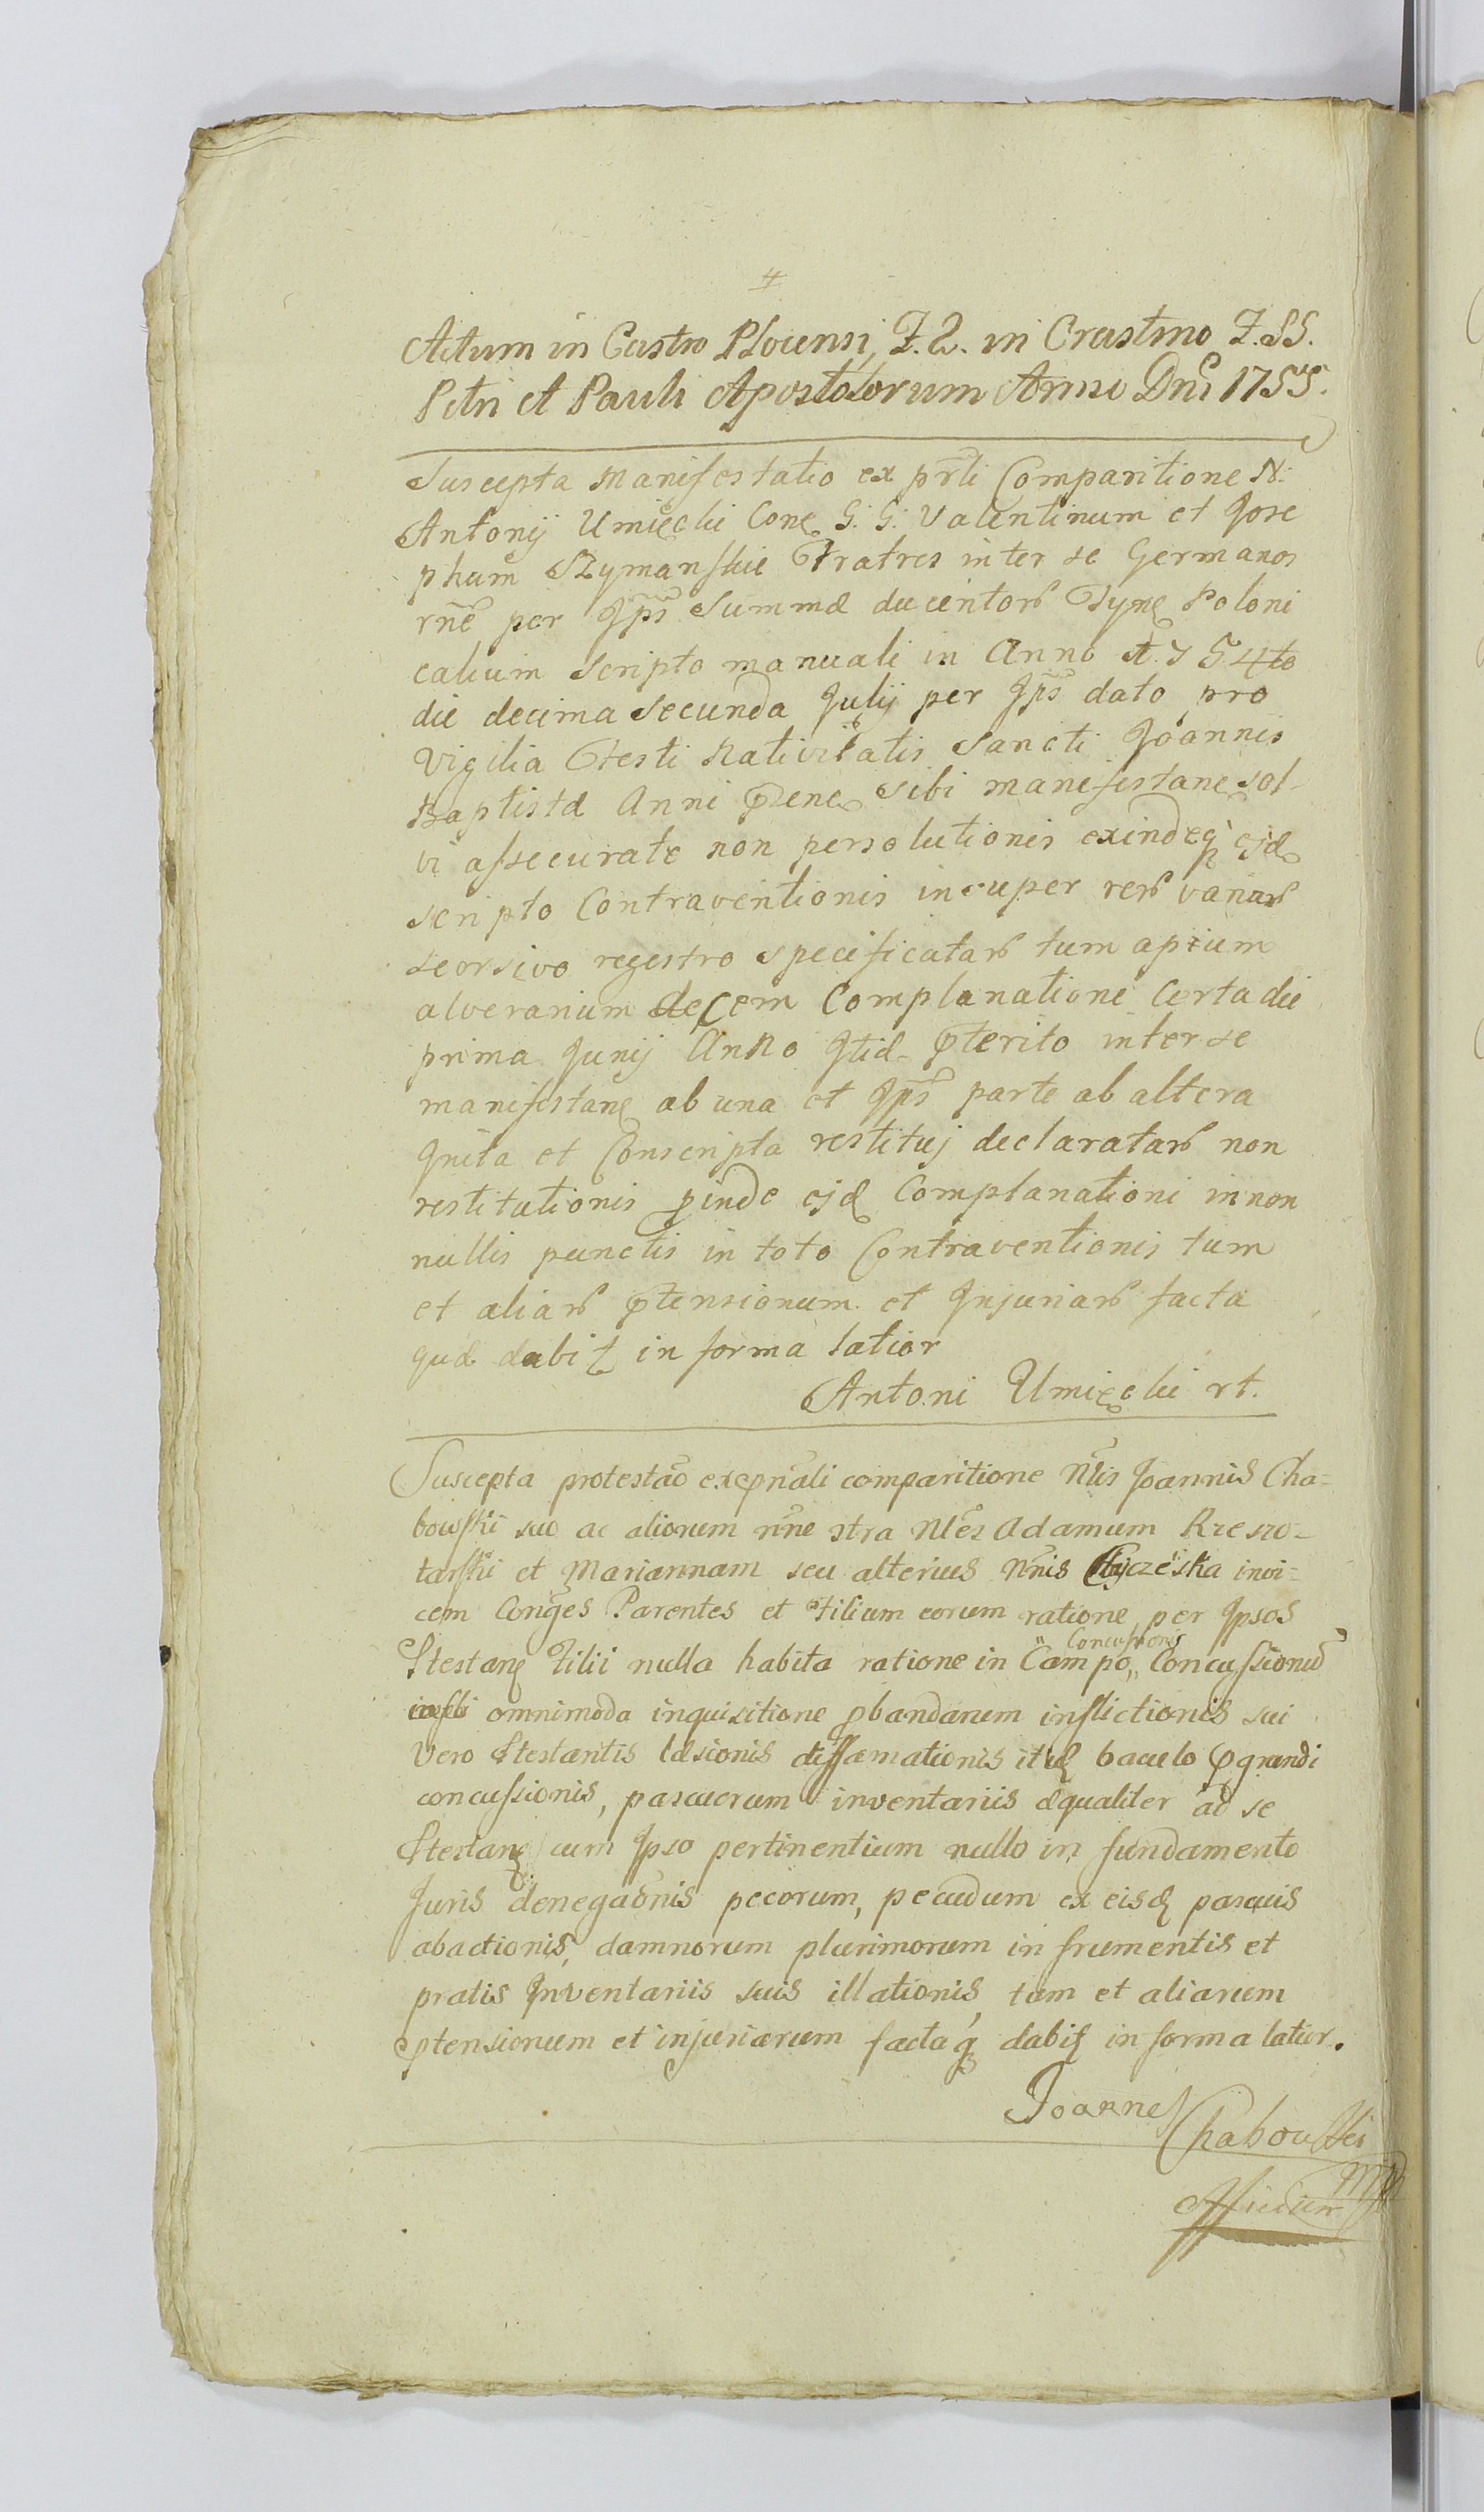 #
Actum in Castro Plocensi, F. 2. in Crastino F. SS.
Petri et Pauli Apostolorum Anno Dni 1755.
Suscepta Manifestatio ex prti Comparitione N:
Antonij Umięcki Conę G: G: Valentinum et Jose
phum Szymanskie Fratres inter se Germanos
rne per Jps Summæ ducentor Tymę Poloni
calium scripto manuali in Anno 1754to
die decima secunda Julij per Jps dato pro
Vigilia Festi Nativitatis Sancti Joannis
Baptistæ Anni pdene sibi manifestanę sol-
vi assecuratæ non persolutionis exindeq ejdę
scripto Contraventionis insuper rer variar
seorsivo regestro specificatar tum apium
alvearium decem Complanatione Certa die
prima Junij Anno Jtid- pterito inter se
manifestanę ab una et Jps parte ab altera
Jnita et Conscripta restituj declaratar non
restitutionis pinde ejdę Complanationi in non
nullis punctis in toto Contraventionis tum
et aliar ptensionum et Injuriar facta
quæ dabit in forma latior
Antoni Umięcki rt.
Suscepta protestao ex pnali comparitione Nlis Joannis Cha=
bowski suo ac aliorum nne ctra Nles Adamum Rzeszo-
tarski et Mariannam seu alterius Nnis invi=
cem Conges Parentes et Filium eorum ratione per Jpsos
Ptestanę Filii nulla habita ratione in Campo „ Concussionis
Concussionũ
omnimoda inquisitione pbandarum inflictionis sui
Vero Ptestantis læsionis diffamationis itidę baculo pgrandi
concussionis, pascuorum inventariis æqualiter ad se
Ptestanę cum Jpso pertinentium nullo in fundamento
Juris denegaonis pecorum, pecudum ex eisdę pascuis
abactionis, damnorum plurimorum in frumentis et
pratis Inventariis suis illationis, tum et aliarum
ptensionum et injuriarum facta q dabit in forma latior.
Joannes
Chabowski
mp